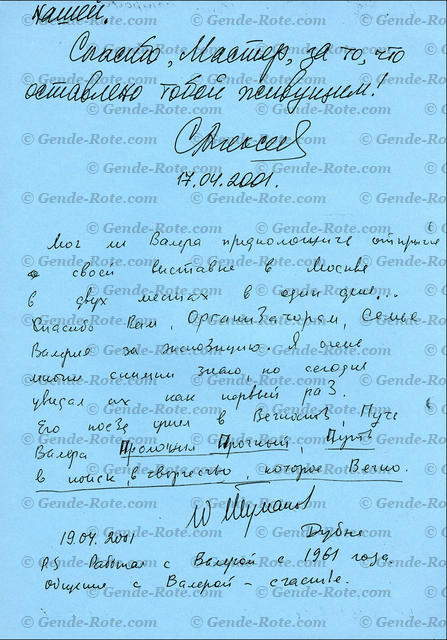 нашей.
Спасибо, Мастер, за то, что
оставлено тобой живущим!
САлексеев
17.04.2001.
Мог ли Валера предположить открытие
о своей выставке в Москве
в двух местах в один день...
Спасибо Вам, Организаторам, Семье
Валерия за экспозицию. Я очень
многие снимки знаю, но сегодня
увидел их как первый раз.
Его поезд ушел в Вечность, Пусть
Валера Проложил Прочный Путь
в поиск, в творчество, которое Вечно.
19.04.2001
Дубна
P.S Работал с Валерой с 1961 года.
общение с Валерой - счастье.
© Gende-Rote.com